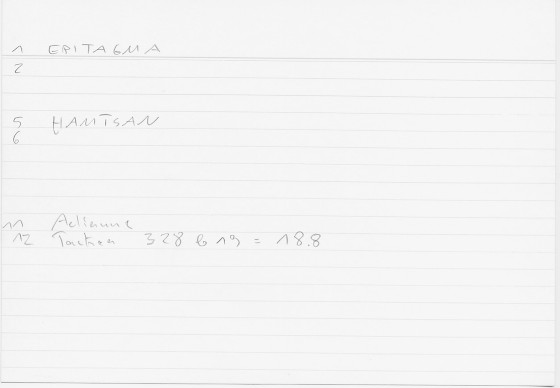 1 EPITAGMA
2
5 HAMTSAN
6
11 Aelianne
12 Tactica 328 b 19 = 18.8